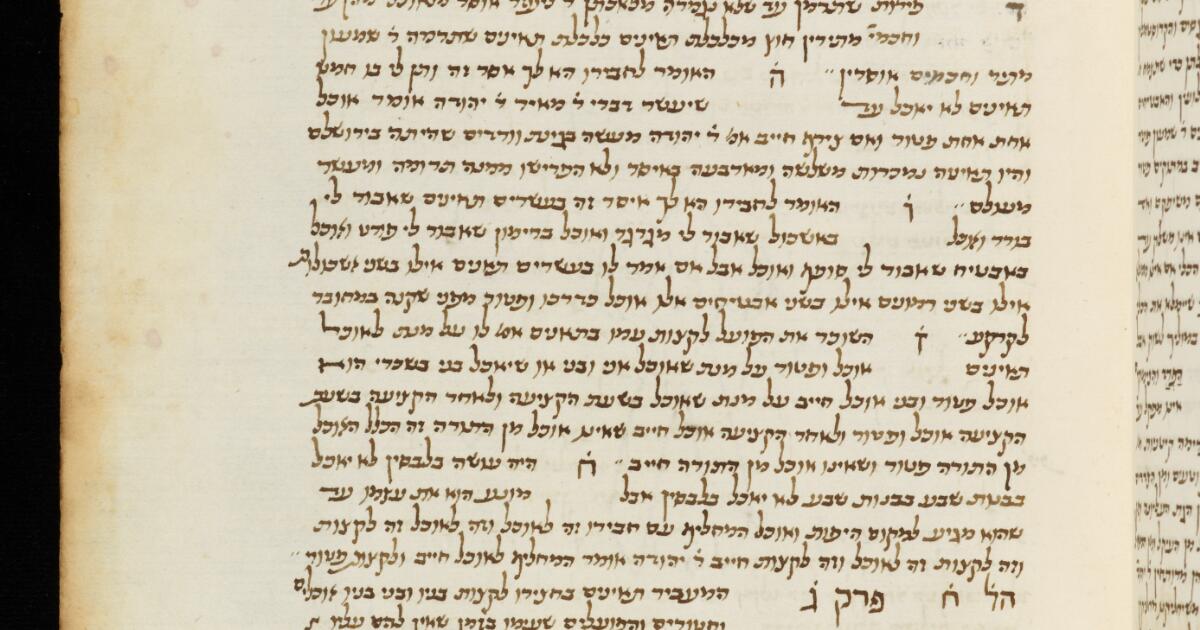 פירות שתרמן עד שלא נגמרה מלאכתן ר׳ ליעזר אוסר מלאוכל מהן עד
וחכמי׳ מתירין חוץ מכלכלת תאינים כלכלת תאינים שתרמה ר׳ שמעון
מתיר וחכמים אוסרין ה האומר לחבירו הא לך אסר זה ותן לי בו חמש
תאינים לא יאכל עד שיעשר דברי ר׳ מאיר ר׳ יהודה אומר אוכל
אחת אחת פטור ואם צירף חייב אמ׳ ר׳ יהודה מעשה בגינת וורדים שהיתה בירושלם
והיו תאיניה נמכרות משלשה ומארבעה באיסר ולא הפרישו ממנה תרומה ומעשר
מעולם ו האומר לחבירו הא לך איסר זה בעשרים תאינים שאבור לי
בורר ואוכל באשכול שאבור לי מגרגר ואוכל ברימון שאבור לי פורט ואוכל
באבטיח שאבור לי סופת ואוכל אבל אם אמר לו בעשרים תאנים אילו בשני אשכולות
אילו בשני רמונים אילו בשני אבטיחים אלו אוכל כדרכו ופטור מפני שקנה במחובר
לקרקע ז השוכר את הפועל לקצות עמו בתאנים אמ׳ לו על מנת לאוכל
תאינים אוכל ופטור על מנת שאוכל אני ובני או שיאכל בני בשכרי הוא
אוכל פטור ובנו אוכל חייב על מנת שאוכל בשעת הקציעה ולאחר הקציעה בשעת
הקציעה אוכל ופטור ולאחר הקציעה אוכל חייב שאינו אוכל מן התורה זה הכלל האוכל
מן התורה פטור ושאינו אוכל מן התורה חייב ח היה עושה בלבסין לא יאכל
בבנות שבע בבנות שבע לא יאכל בלבסין אבל מונע הוא את עצמו עד
שהוא מגיע למקום היפות ואוכל המחליף עם חבירו זה לאוכל וזה לאוכל זה לקצות
וזה לקצות זה לאוכל וזה לקצות חייב ר׳ יהודה אומר המחליף לאוכל חייב ולקצות פטור
הל׳ ח פרק ג המעביר תאינים בחצירו לקצות בניו ובני ביתו אוכלים
ופטורים והפועלים שעימו בזמן שאין להם עליו